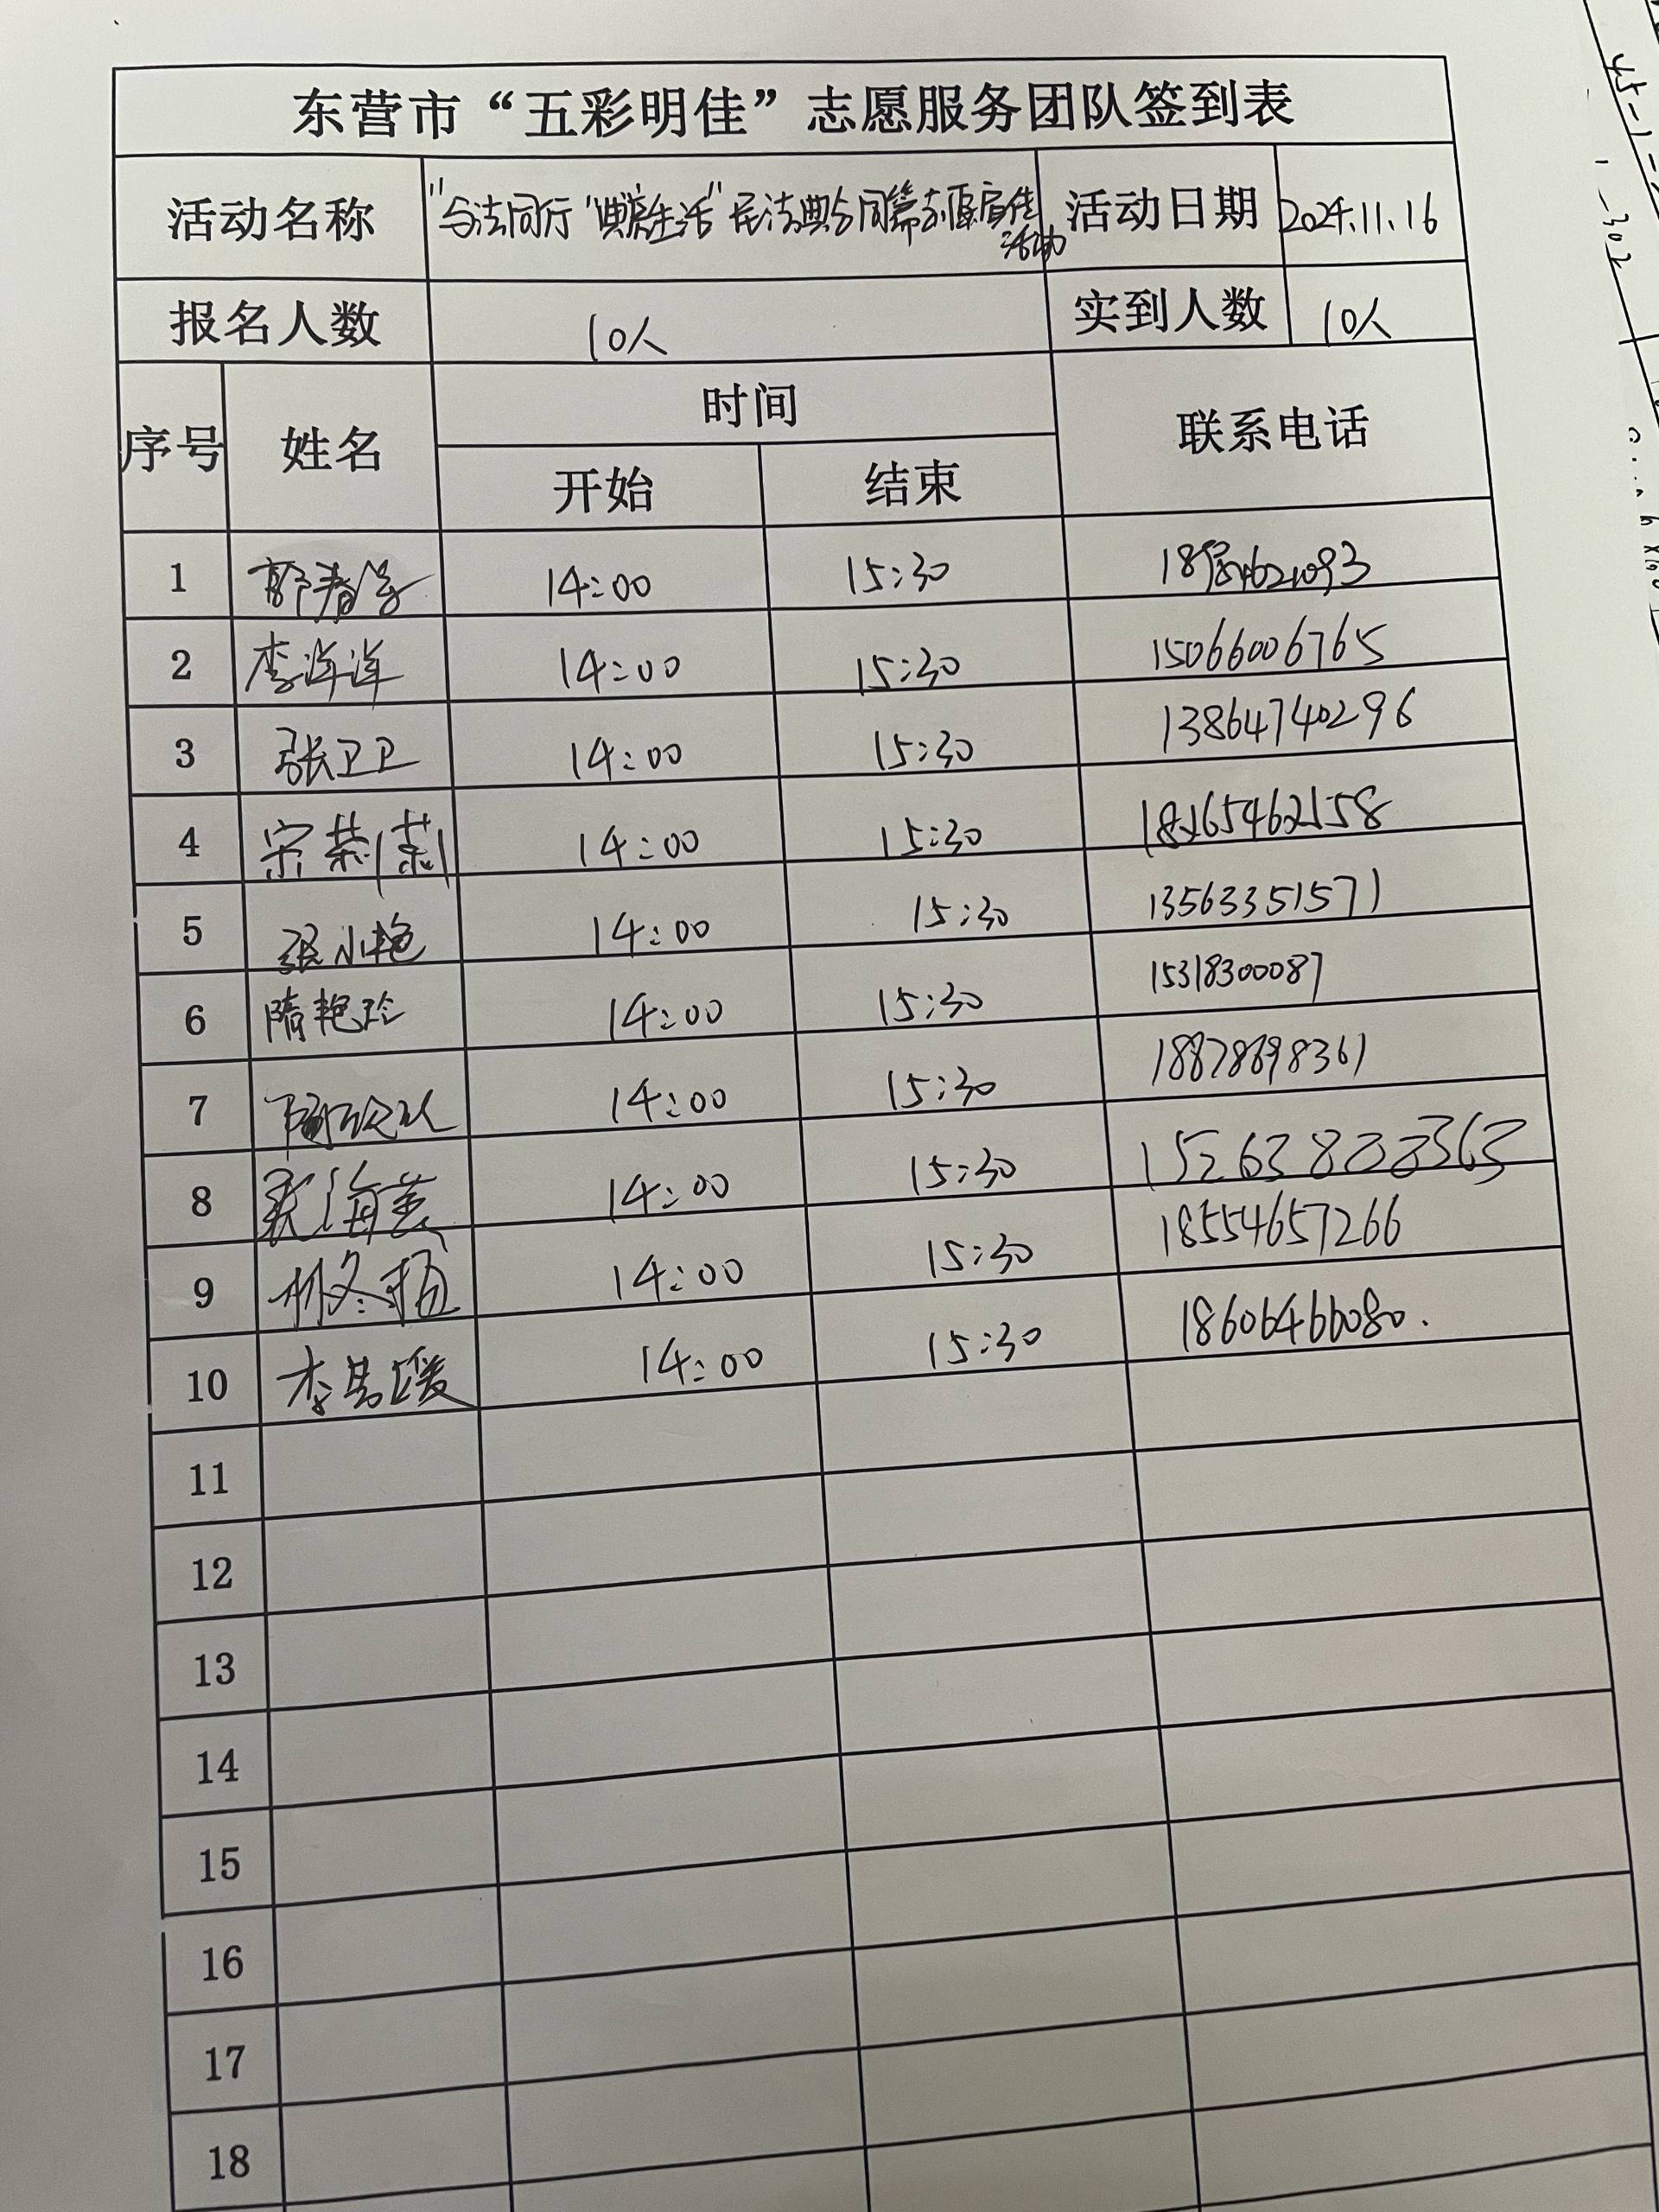 东营市“五彩明佳”志愿服务团队签到表
活动名称 "与法同行 "典"亮生活" 民法典合同篇志愿宣传活动 活动日期 2024.11.16
报名人数 10人 实到人数 10人
序号 姓名 时间 联系电话
开始 结束
1 14:00 15:30
2 李洋洋 14:00 15:30 15066006765
3 张卫卫 14:00 15:30 13864740296
4 宋荣莉 14:00 15:30 18265462158
5 张小艳 14:00 15:30 13563351571
6 隋艳玲 14:00 15:30 15318300087
7 14:00 15:30 18878698361
8 14:00 15:30
9 14:00 15:30 18554657266
10 14:00 15:30 18606466080.
11
12
13
14
15
16
17
18